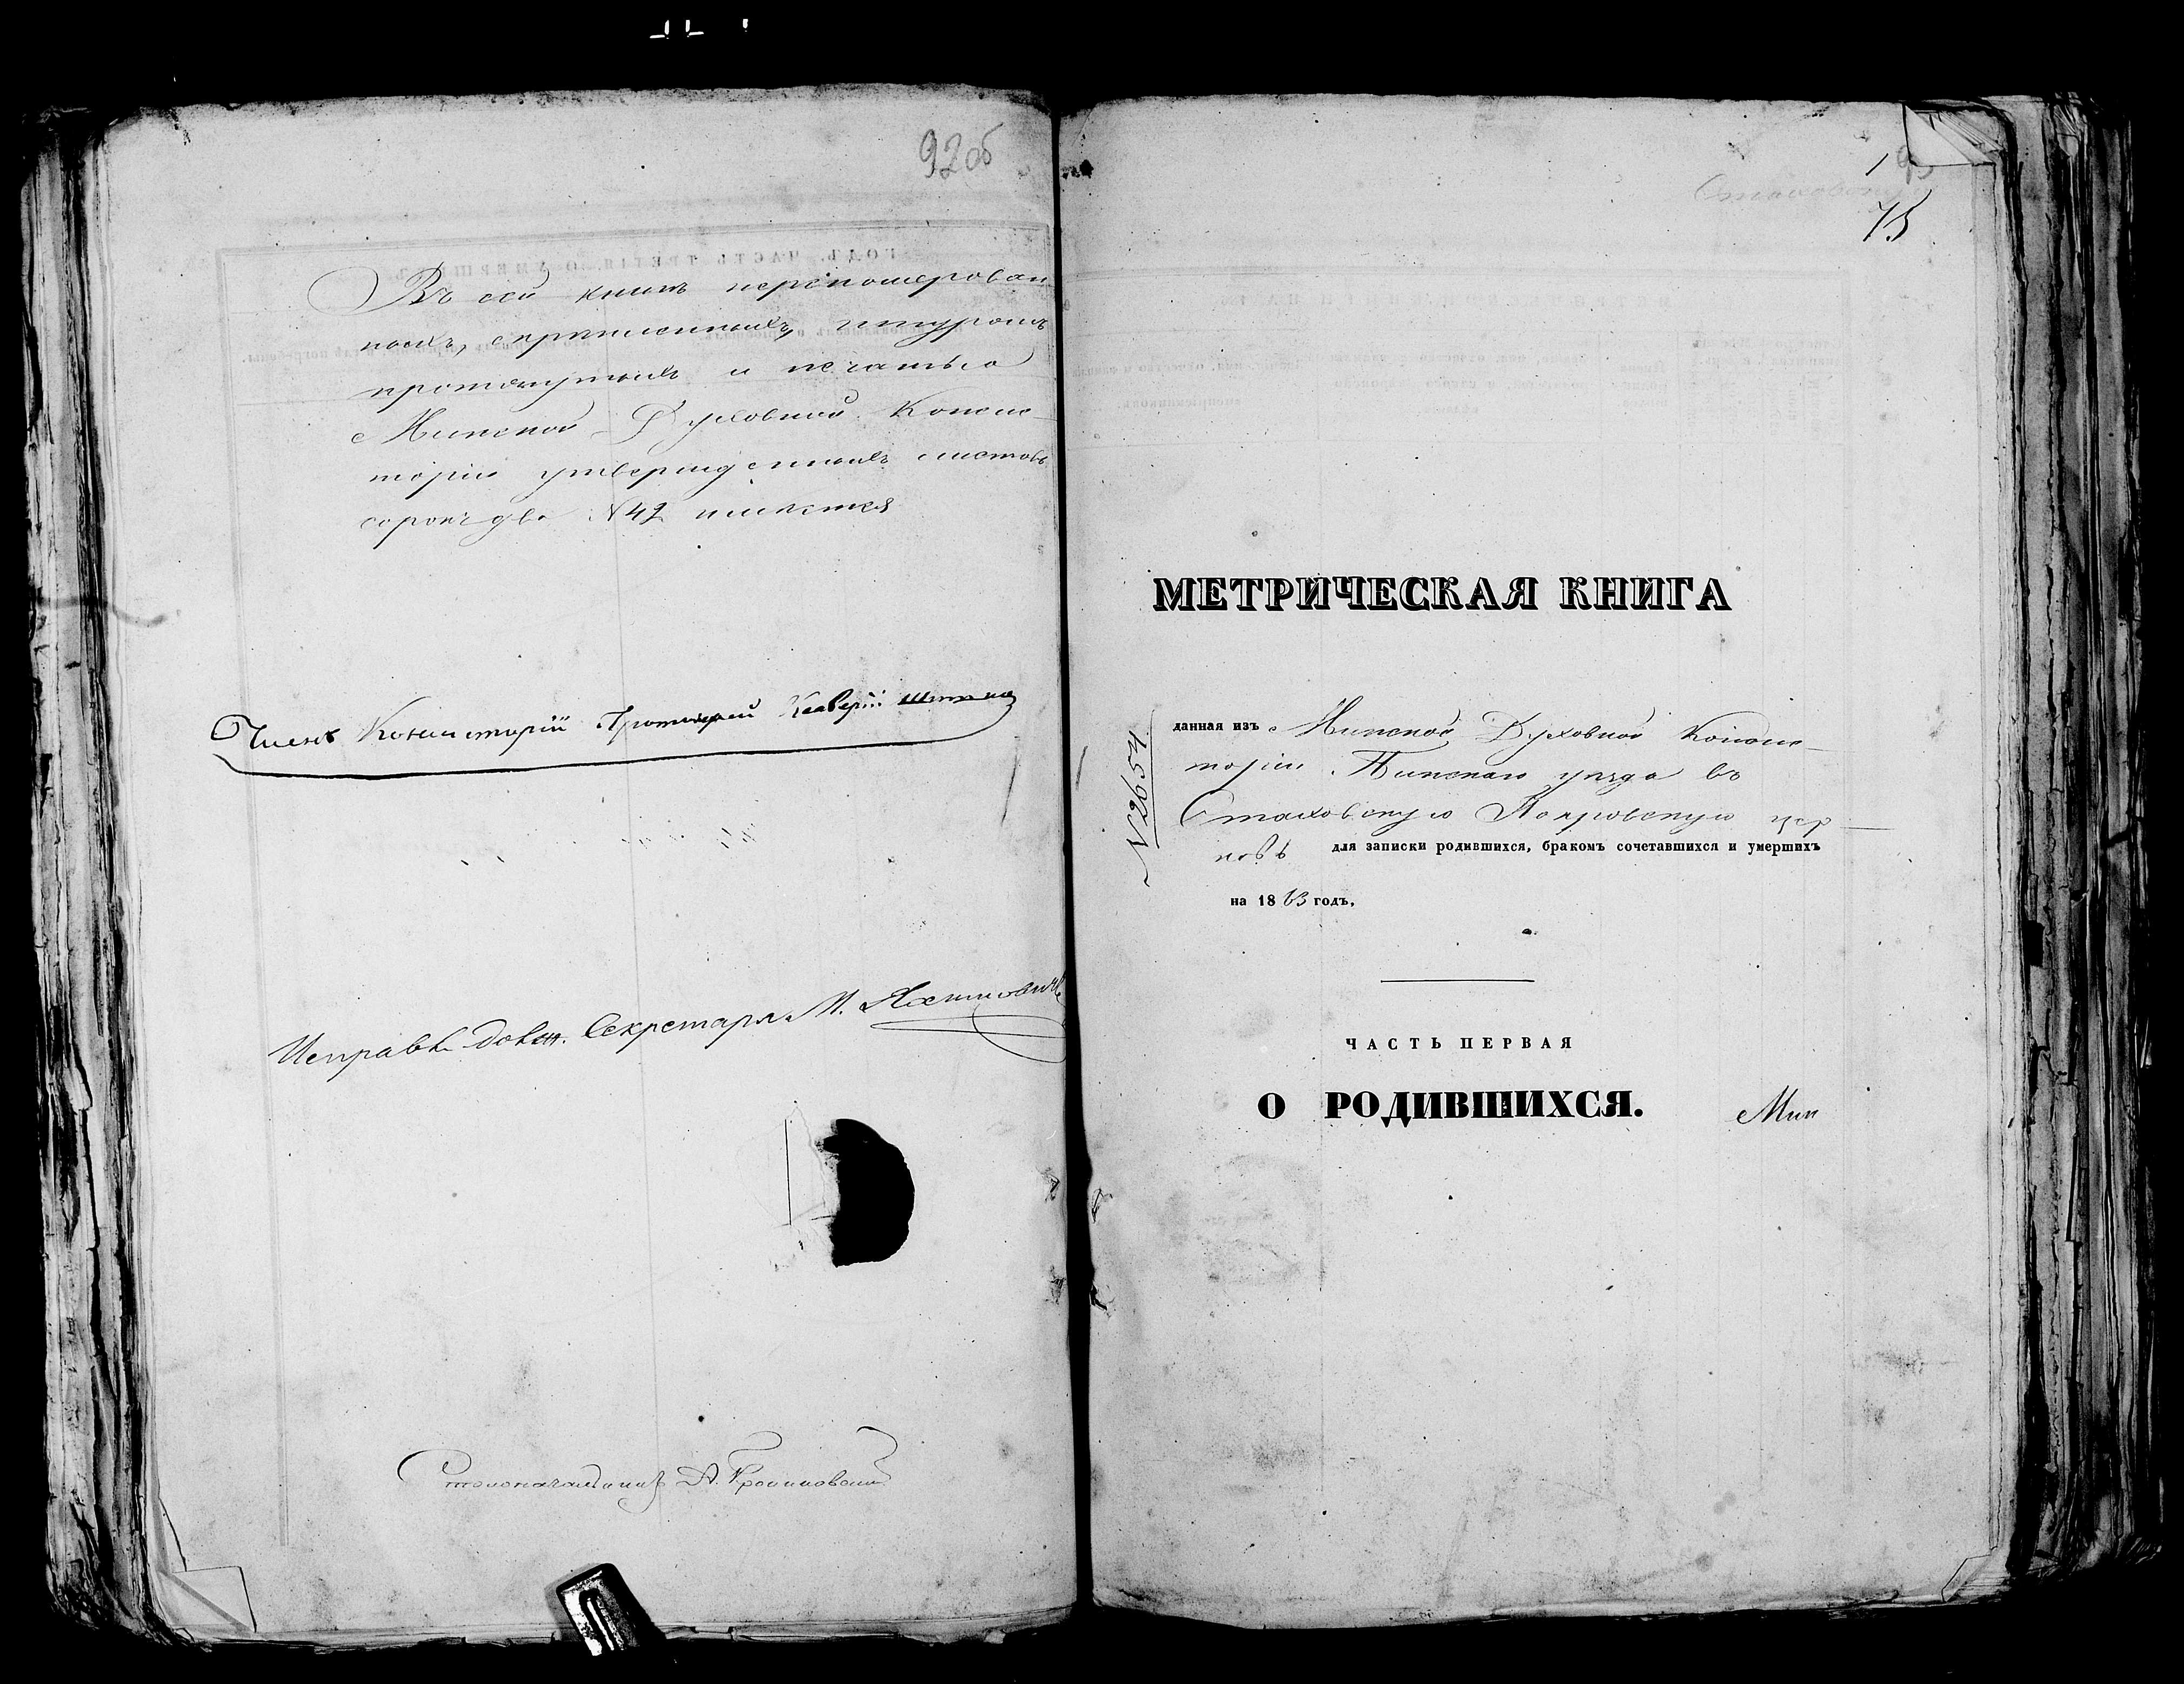 92об
Въ сей книгѣ перенумерован
ныхъ, скрѣпленныхъ, шнуромъ
протянутыхъ и печатью
Минской Духовной Консис-
торіи утвержденныхъ листовъ
сорокъ два N 42 имѣется
Членъ Консисторіи Протоіерей Ксаверій
Исправл. долж. Секретаря М.
Столоначальникъ А.
1
75
МЕТРИЧЕСКАЯ КНИГА
N 2654
данная изъ Минской Духовной Консис-
торіи Пинскаго уѣзда въ
Стаховскую Покровскую цер-
ковь для записки родившихся, бракомъ сочетавшихся и умершихъ
на 1863 годъ.
ЧАСТЬ ПЕРВАЯ
О РОДИВШИХСЯ.
Мин